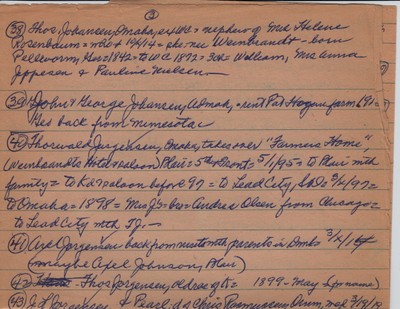 ③
38) Thos. Johansen, Omaha, ex WC = nephew of Mrs Helene
Rosenbaum = who + 12/14 = she nee Weinbrandt - born
Pelleworm, Hos 1842 = to WC 1872 = 3ch = William, Mrs Anna
Jeppesen & Pauline Nielsen —
39) John & George Johansen, Admah, = rent Pat Hogan farm (91=
Geo back from Minnesota
40) Thorwald Jorgensen, Omaha, takes over "Farmers Home",
(Weinbrandts Hotel + saloon) Blair = 5th & Front = 5/1/95 = to Blair mth
family = to Ka = saloon before 97 = to Lead City, SD = 3/2/97 =
to Omaha = 1898 = Mrs J = bro = Andrew Olsen from Chicago =
to Lead City mth TJ. —
41) Axel Jorgensen back from visit mth parents in Dmk = 3/2/14
(maybe Axel Johnson, Blair)
42 - Thos Jorgensen, old res of K = 1899 - May (no name)
43) J. L. Jorgensen & Pearl, d of Chris Rasmussen, Orum, med 3/19/19